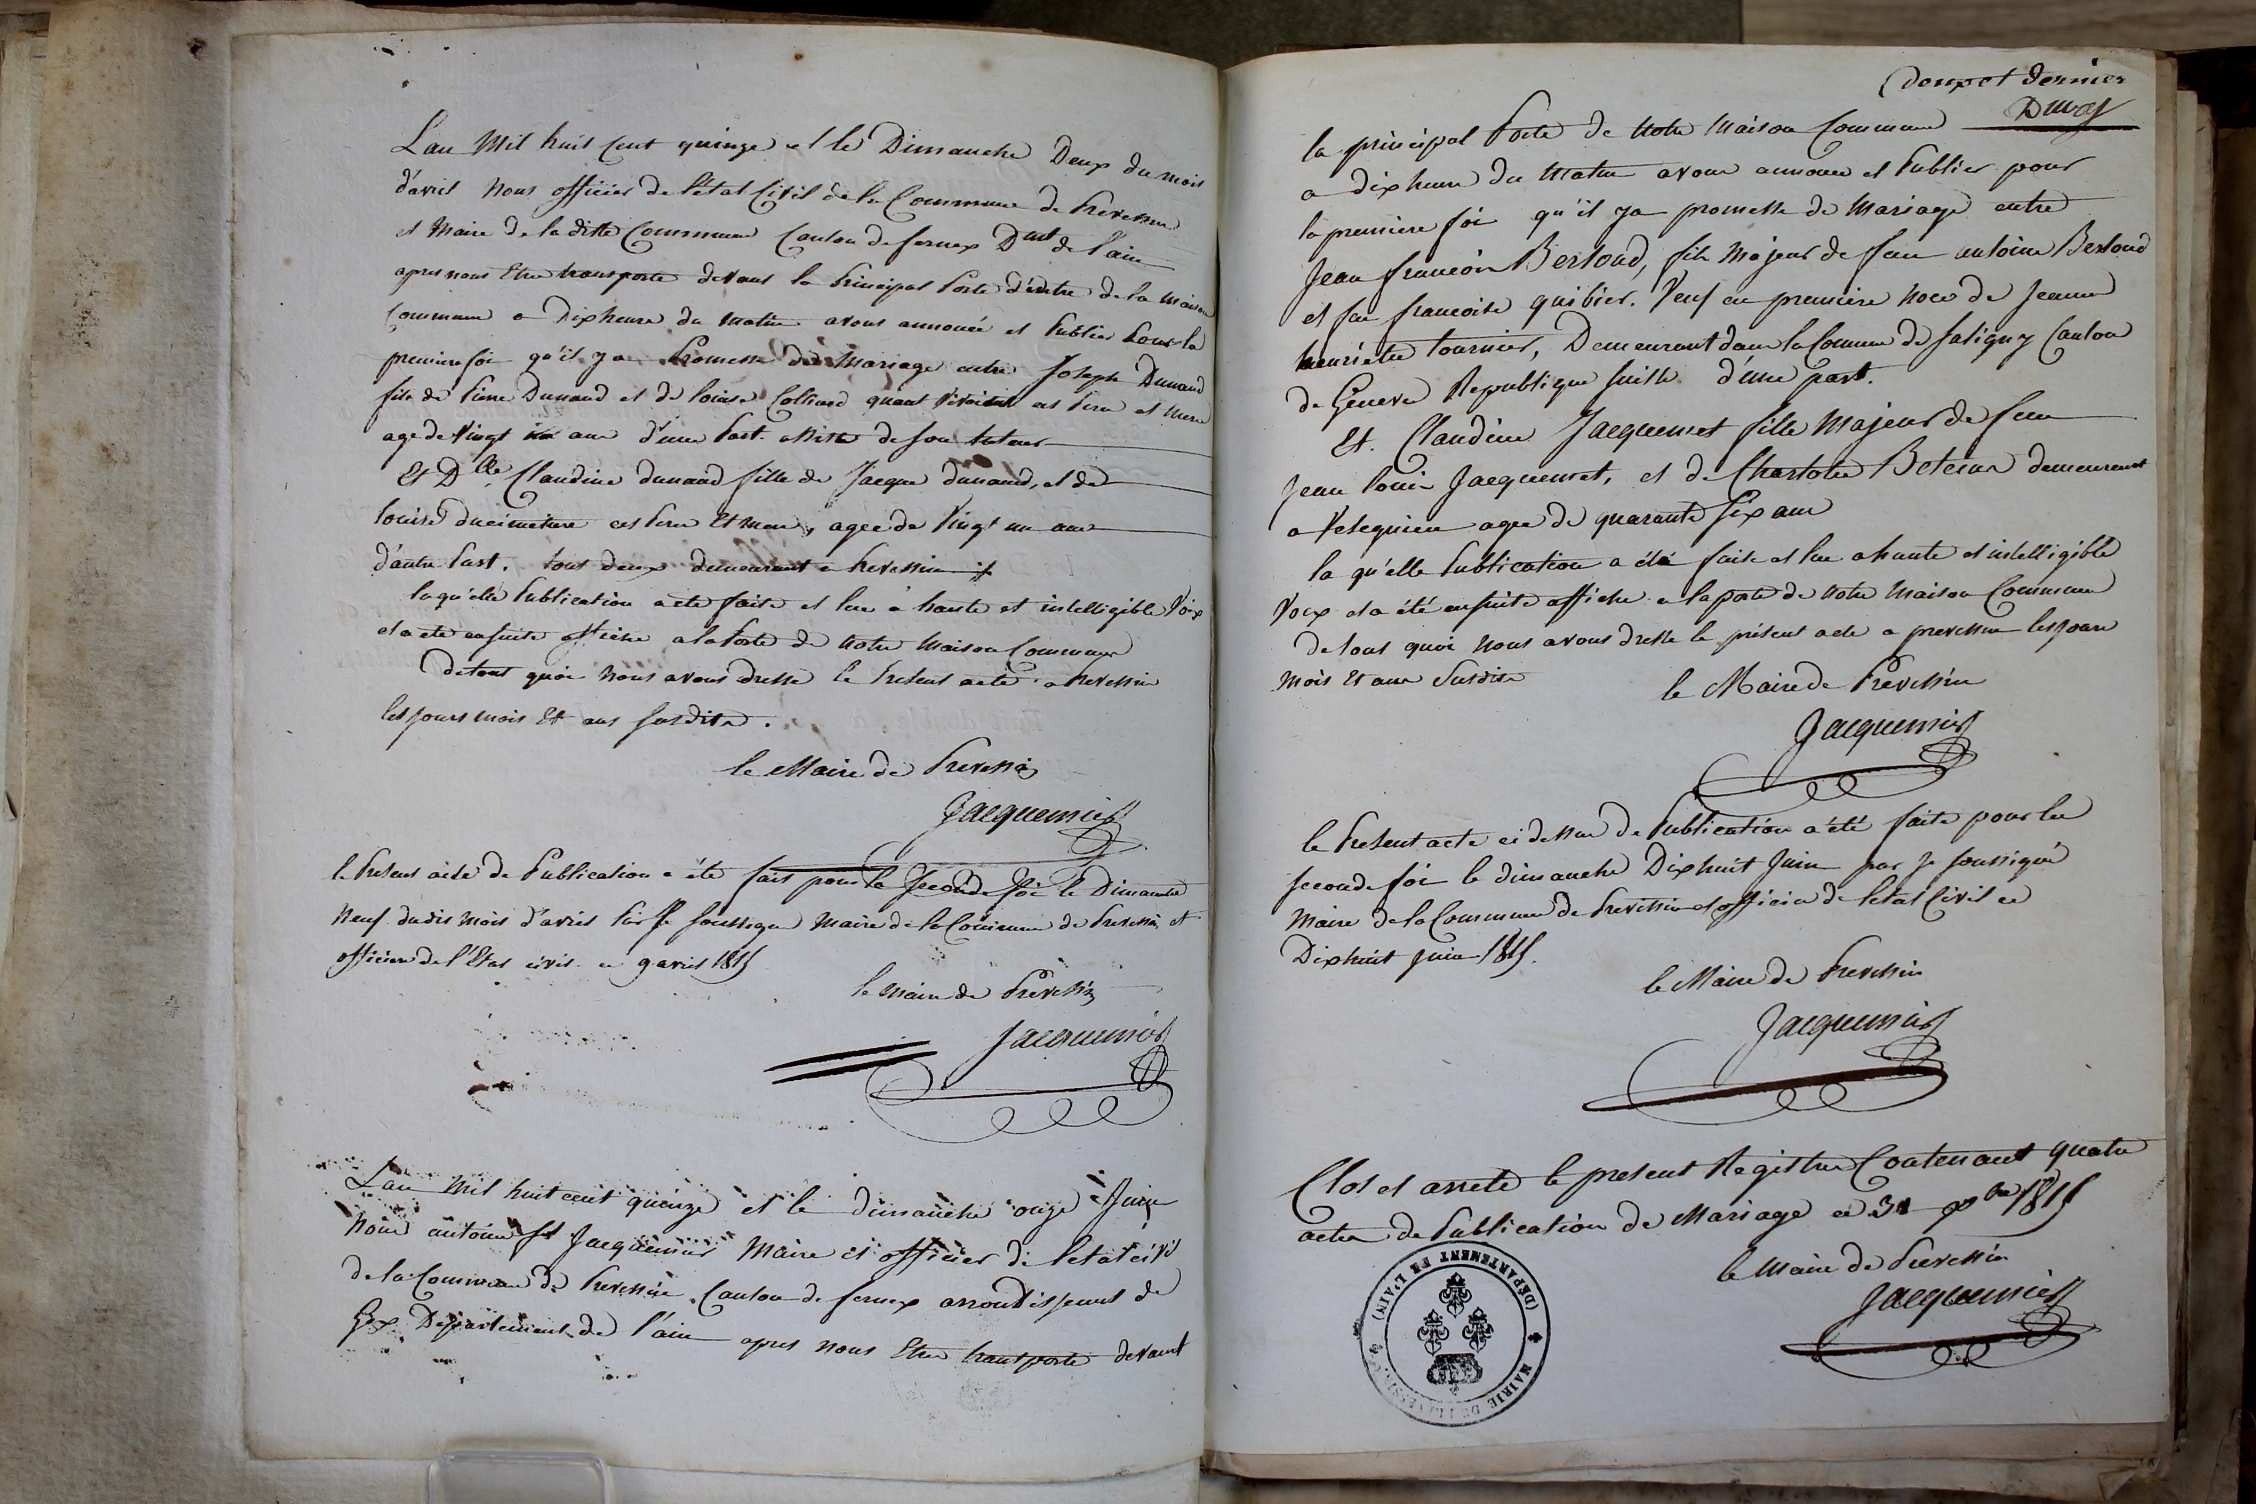 L'an Mil huit cent quinze et le Dimanche Deux du mois
d'avril Nous officier de l'état Civil de la Commune de Prevessin
et Maire de la ditte Commune Canton de fernex Dmt de l'ain
apres nous Etre transporte devant la Principal Porte d'entre de la maison
Commune a Dix heure du Matin avons annoncé et Publier Pour la
premiere foi qu'il y a Promesse de Mariage entre Joseph Dunand
fils de Pierre Dunand et de louise Colliard quant vivoient ces Pere et Mere
age de Vingt ans d'une Part. assiste de son tuteur
Et Dlle Claudine dunand fille de Jacque dunand, et de
louise ducimetiere ces Pere Et Mere, agee de Vingt un ans
d'autre Part. tous deux demeurant a Prevessin
laqu'elle Publication a ete faite et lue à haute et intelligible Voix
et a ete ensuite affiche a la Porte de Notre Maison Commune
de tout quoi Nous avons dresse le Present acte a Prevessin
les jours mois Et ans susdite.
le Maire de Prevessin
Jacquemier
le Present acte de Publication a été fait pour la seconde foi le Dimanche
Neuf dudis mois d'avril Par Je soussigne Maire de la Commune de Prevessin et
officier de l'Etat civil ce 9 avril 1815
le Maire de Prevessin
Jacquemier
L'an Mil huit cent quinze et le dimanche onze Juin
Nous antoine Jacquemier Maire et officier de l'etat civil
de la Commune de Prevessin Canton de fernex arrondissement de
Gex Departement de l'ain apres nous Etre transporte devant
Doux et dernier
la principal Porte de Notre Maison Commune
a dix heure du Matin avons annonce et Publier pour
la premiere foi qu'il y a promesse de Mariage entre
Jean francois Bertoud, fils Majeur de feu antoine Bertoud
et feu francoise quibier. Veuf en premiere noce de Jeanne
henriette tournier, Demeurant dans la Commune de Satigny Canton
de Geneve Republique Suisse d'une part.
Et. Claudine Jacquemet fille Majeur de feu
Jean louis Jacquemet, et de Charlotte Betems demeurent
a Vesegnien agee de quarante six ans
la qu'elle Publication a été faite et lue a haute et intelligible
Voix et a été ensuite affiche a la porte de Notre Maison Commune
de tous quoi Nous avons dresse le présent acte a prevessin les jours
Mois Et ans Susdite
le Maire de Prevessin
Jacquemier
le Present acte ci dessus de Publication a été faite pour la
seconde foi le dimanche Dixhuit Juin par Je soussigné
Maire de la Commune de Prevessin et officier de l'etat Civil ce
Dixhuit Juin 1815.
le Maire de Prevessin
Jacquemier
Clos et arrete le present Registre Contenant quatre
actes de Publication de Mariage ce 31 xbre 1815
le Maire de Prevessin
Jacquemier
MAIRIE DE PREVESSIN (DÉPARTEMENT DE L'AIN)